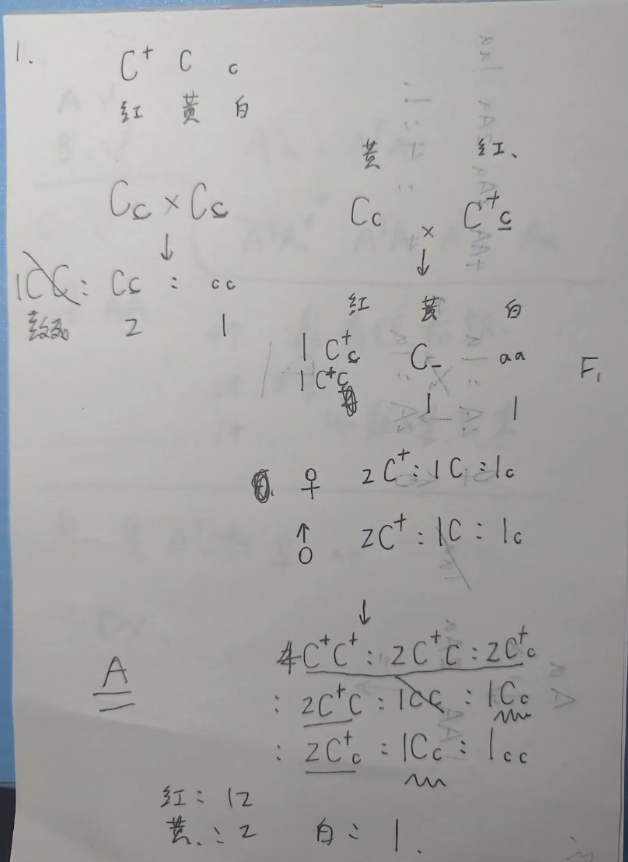 1.
C⁺ C c
红 黄 白
Cc × Cc
↓
1CC : Cc : cc
致死 2 1
黄 红、
Cc × C⁺c
↓
红 黄 白
1 C⁺c C_ aa F₁
1 C⁺C 1 1
♀ 2C⁺ : 1C : 1c
♂ 2C⁺ : 1C : 1c
↓
A
4C⁺C⁺ : 2C⁺C : 2C⁺c
: 2C⁺C : 1CC : 1Cc
: 2C⁺c : 1Cc : 1cc
红 : 12
黄 : 2 白 : 1.